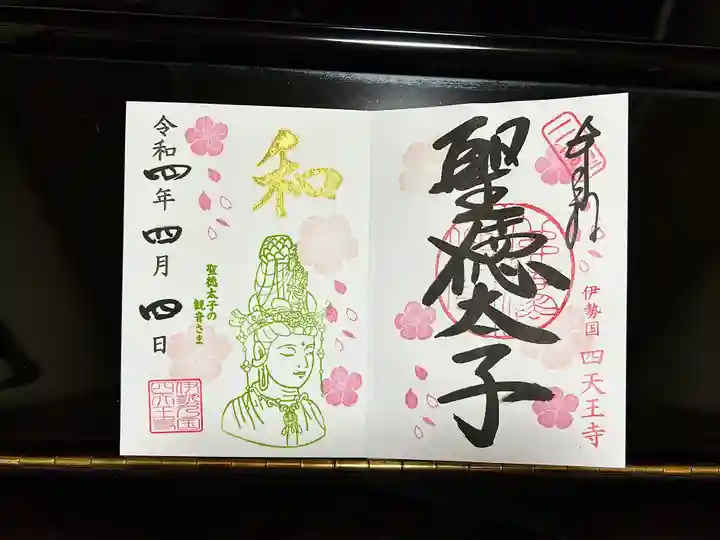 奉拝
聖徳太子
伊勢国 四天王寺
和
聖徳太子の
観音さま
令和四年 四月 四日